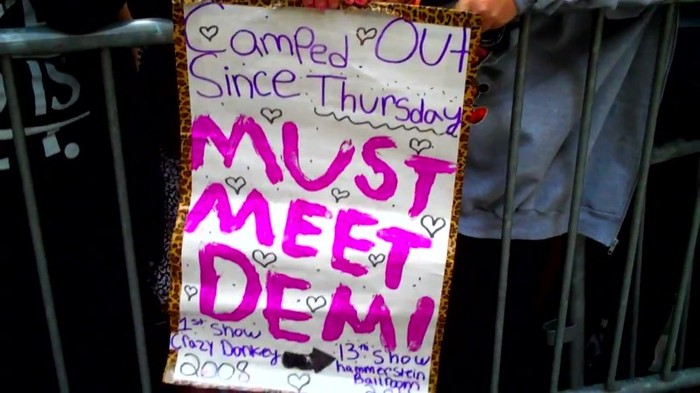 Camped Out
Since Thursday
MUST
MEET
DEMI
1st Show
Crazy Donkey
2008
13th Show
hammerstein
Ballroom